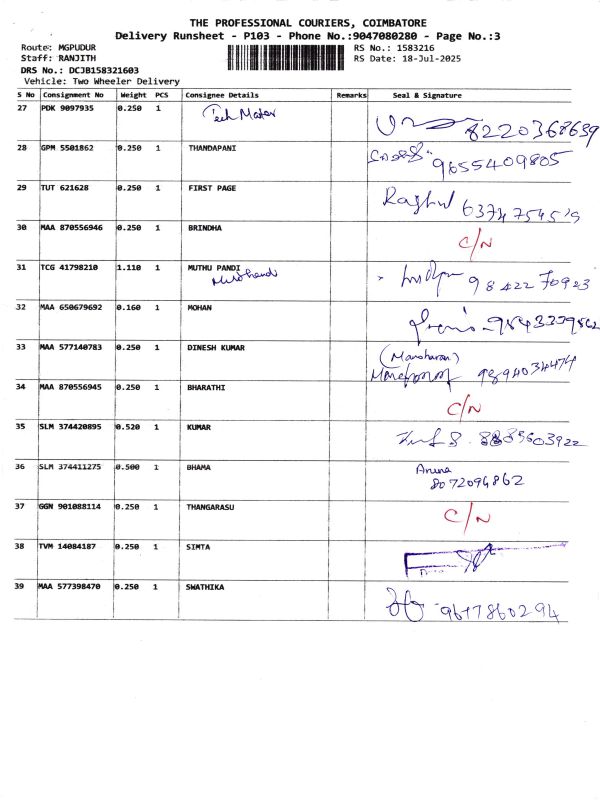 THE PROFESSIONAL COURIERS, COIMBATORE
Delivery Runsheet - P103 - Phone No.:9047080280 - Page No.:3
Route: MGPUDUR
RS No.: 1583216
Staff: RANJITH
RS Date: 18-Jul-2025
DRS No.: DCJB158321603
Vehicle: Two Wheeler Delivery
S No Consignment No Weight PCS Consignee Details Remarks Seal & Signature
27 PDK 9097935 0.250 1
8220368639
28 GPM 5501862 0.250 1 THANDAPANI
9655409805
29 TUT 621628 0.250 1 FIRST PAGE
Raghul
30 MAA 870556946 0.250 1 BRINDHA
C/N
31 TCG 41798210 1.110 1 MUTHU PANDI
98422 70923
32 MAA 650679692 0.160 1 MOHAN
9843339862
33 MAA 577140783 0.250 1 DINESH KUMAR
(Manoharan)
9894034474
34 MAA 870556945 0.250 1 BHARATHI
C/N
35 SLM 374420895 0.520 1 KUMAR
36 SLM 374411275 0.500 1 BHAMA
Aruna
8072094862
37 GGN 901088114 0.250 1 THANGARASU
C/N
38 TVM 14084187 0.250 1 SIMTA
39 MAA 577398470 0.250 1 SWATHIKA
9617860294